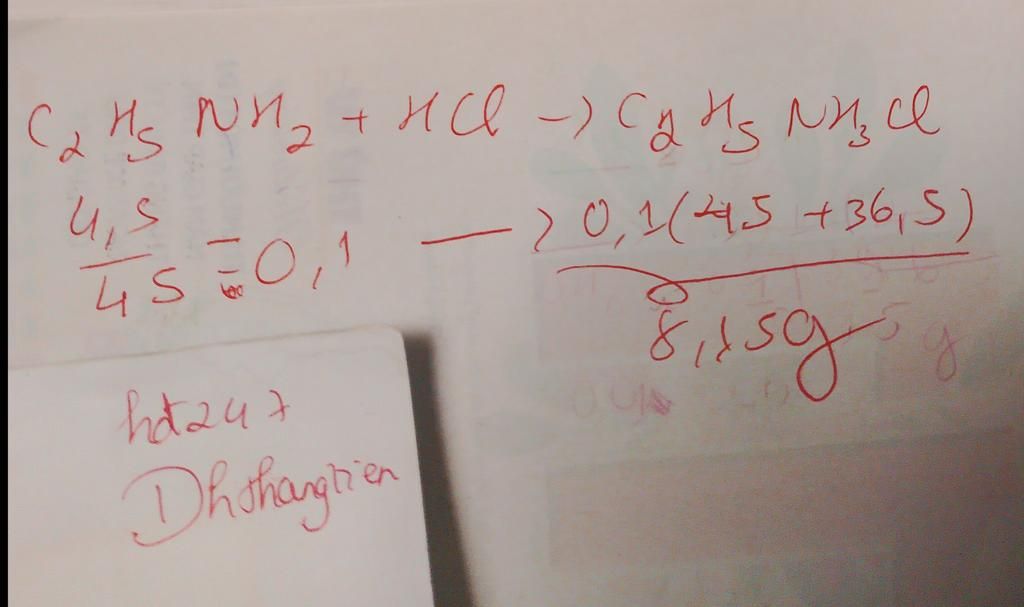 C₂H₅NH₂ + HCl → C₂H₅NH₃Cl
4,5/45 = 0,1 → 0,1(45 + 36,5)
8,15g
hdt247
Dhshangtien